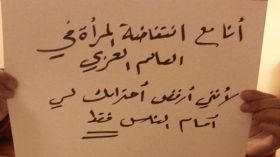 أنا مع انتفاضة المرأة في
العالم العربي
لأنني أرفض احترامك لي
أمام الناس فقط